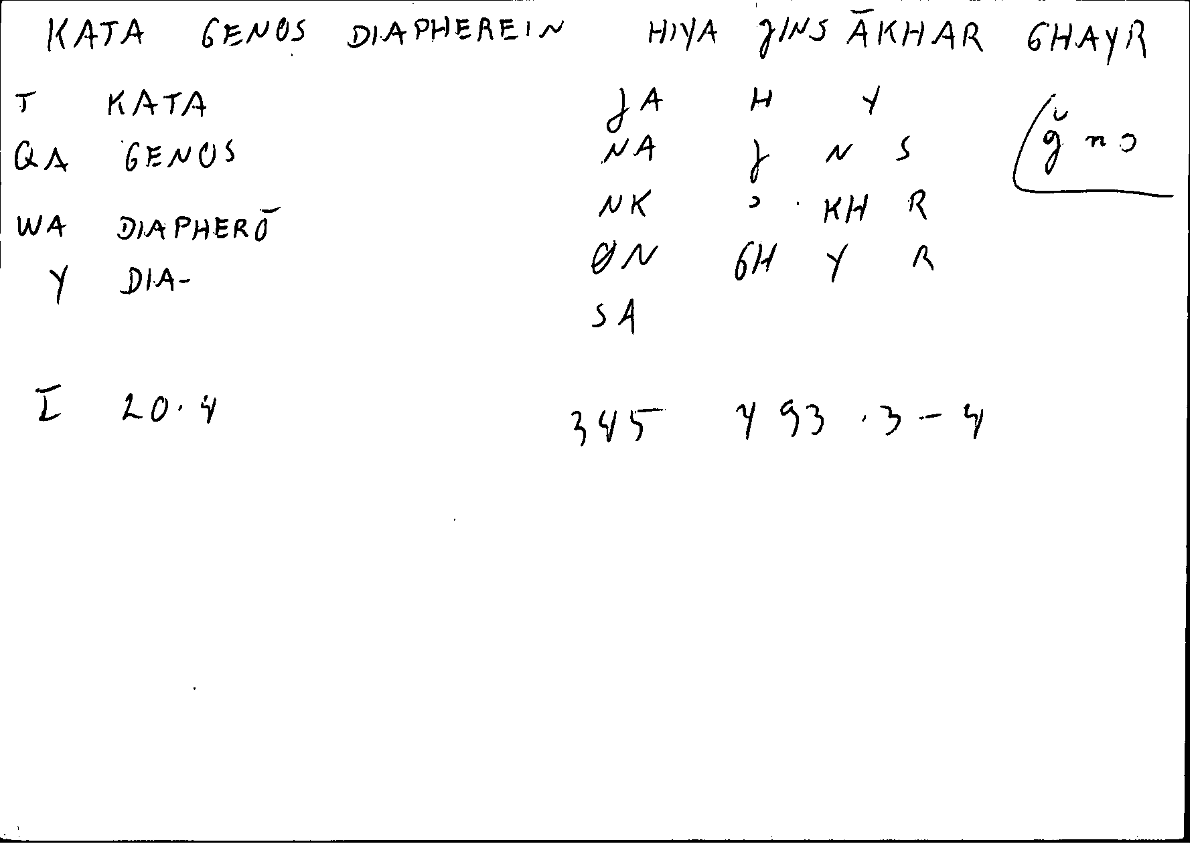 KATA GENOS DIAPHEREIN HIYA JINS ĀKHAR GHAYR
T KATA JA H Y
QA GENOS NA J N S ǧ n s
WA DIAPHERŌ NK ' KH R
Y DIA- ØN GH Y R
SA
I 20.4 345 493.3-4